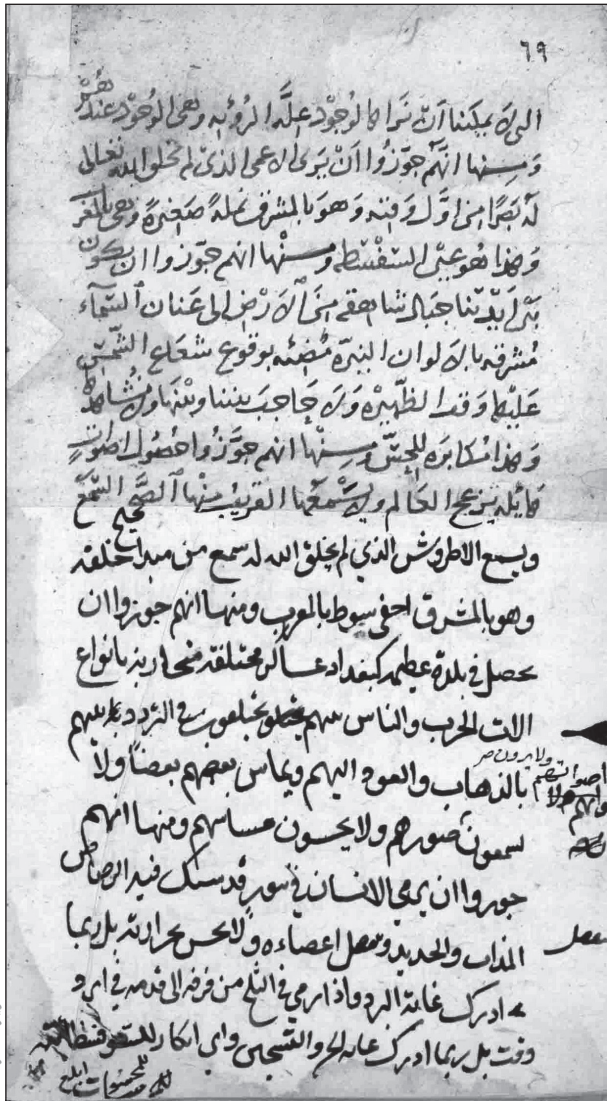 ٦٩
التى لا يمكننا ان نراها لوجود علة الرؤيه وهى الوجود عندهم
ومنها انهم جوزوا ان يرى الاعمى الذى لم يخلق الله تعالى
له بصرا من اول وقته وهو بالمشرق نملة صغيرة وهى بالمغرب
وهذا هو عين السفسطه ومنها انهم جوزوا ان يكون
بين ايدينا جبال شاهقه من الارض الى عنان السماء
مشرقه بالالوان النيره مضيئه بوقوع شعاع الشمس
عليها وقت الظهيرة ولا حاجب بيننا وبينها ولا نشاهدها
وهذا مكابره للحس ومنها انهم جوزوا حصول اصوات
هايله تزعج العالم ولا يسمعها القريب منها الصحيح السمع
ويسمع الاطروش الذي لم يخلق الله له سمع من مبدا خلقه
وهو بالمشرق اخفى صوت بالمغرب ومنها انهم جوزوا ان
يحصل في بلدة عظيمه كبغداد عساكر مختلفه متحاربة بانواع
الات الحرب والناس بينهم يختلفون في التردد بينهم
بالذهاب والعود اليهم ويماس بعضهم بعضا ولا
ولا يرون صورهم
يسمعون ولا يحسون بمماستهم ومنها انهم
جوزوا ان يرمى الانسان في تنور قد سبك فيه الرصاص
المذاب والحديد وتنفصل اعضاءه ولا يحس بحرارته بل ربما
ادرك غاية البرد واذا رمي في الثلج من قرنه الى قدمه في ابرد
وقت بل ربما ادرك غايه الحر والتسخين واي انكار
للمحسوسات ابلغ